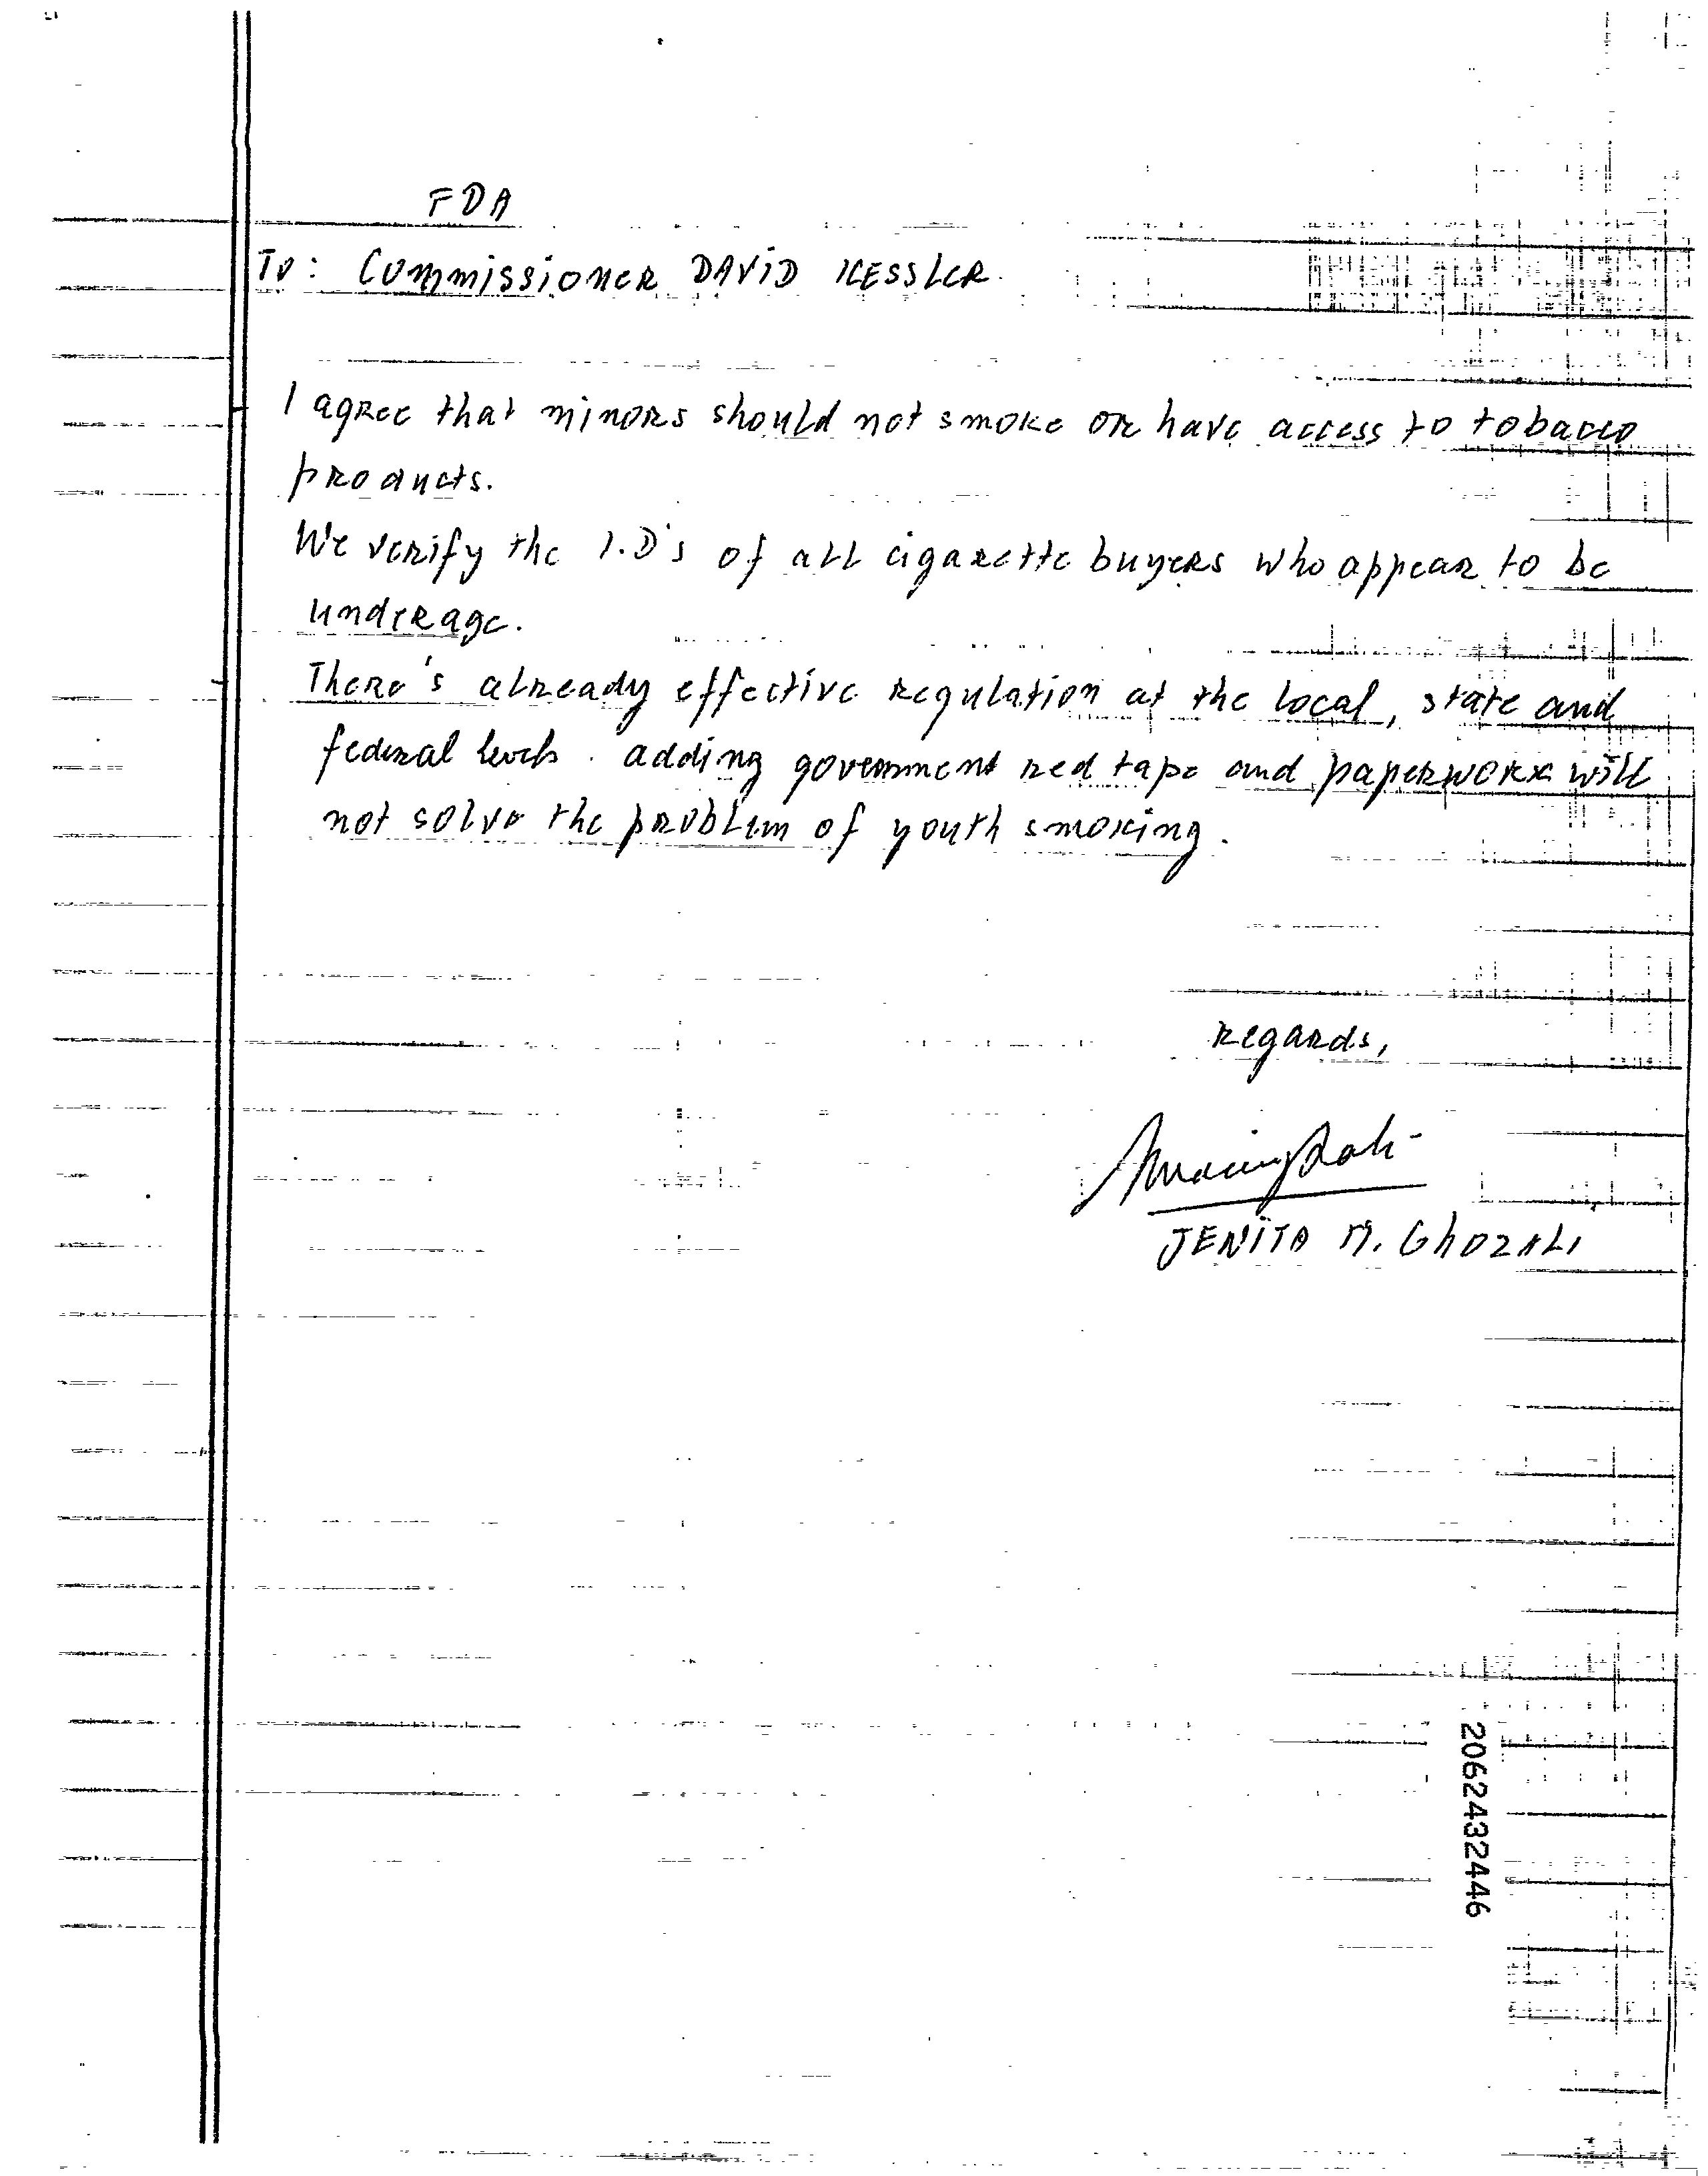 FDA
To: Commissioner DAViD KESSLER.
I agree that minors should not smoke or have access to tobacco
products.
We verify the I.D's of all cigarette buyers who appear to be
underage.
There's already effective regulation at the local, state and
federal levels. adding government red tape and paperwork will
not solve the problem of youth smoking.
regards,
JENiTA M. GhOZALi
2062432446